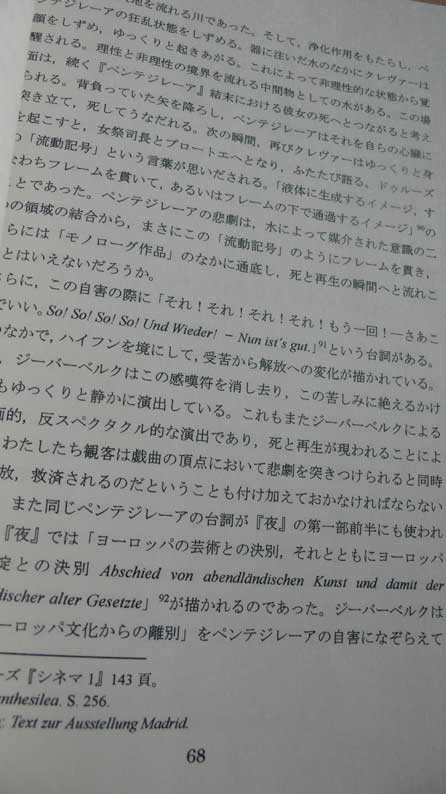 地を流れる川であった。そして，浄化作用をもたらし，ペ
ンテジレーアの狂乱状態をしずめる。器に注いだ水のなかにクレヴァーは
顔をしずめ，ゆっくりと起きあがる。これによって非理性的な状態から覚
醒される。理性と非理性の境界を流れる中間物としての水がある。この場
面は，続く『ペンテジレーア』結末における彼女の死へとつながると考え
られる。背負っていた矢を降ろし，ペンテジレーアはそれを自らの心臓に
突き立て，死してうなだれる。次の瞬間，再びクレヴァーはゆっくりと身
を起こすと，女祭司長とプロートエへとなり，ふたたび語る。ドゥルーズ
の「流動記号」という言葉が思いだされる。「液体に生成するイメージ，す
なわちフレームを貫いて，あるいはフレームの下で通過するイメージ」90の
ことであった。ペンテジレーアの悲劇は，水によって媒介された意識の二
の領域の結合から，まさにこの「流動記号」のようにフレームを貫き，
らには「モノローグ作品」のなかに通底し，死と再生の瞬間へと流れこ
とはいえないだろうか。
らに，この自害の際に「それ！それ！それ！それ！もう一回！―さあこ
でいい。So! So! So! So! Und Wieder! – Nun ist's gut.」91という台詞がある。
のなかで，ハイフンを境にして，受苦から解放への変化が描かれている。
，ジーバーベルクはこの感嘆符を消し去り，この苦しみに絶えるかけ
もゆっくりと静かに演出している。これもまたジーバーベルクによる
面的，反スペクタクル的な演出であり，死と再生が現われることによ
わたしたち観客は戯曲の頂点において悲劇を突きつけられると同時
放，救済されるのだということも付け加えておかなければならない
また同じペンテジレーアの台詞が『夜』の第一部前半にも使われ
『夜』では「ヨーロッパの芸術との決別，それとともにヨーロッパ
定との決別 Abschied von abendländischen Kunst und damit der
discher alter Gesetzte」92が描かれるのであった。ジーバーベルクは
ーロッパ文化からの離別」をペンテジレーアの自害になぞらえて
ーズ『シネマ1』143 頁。
nthesilea. S. 256.
Text zur Ausstellung Madrid.
68